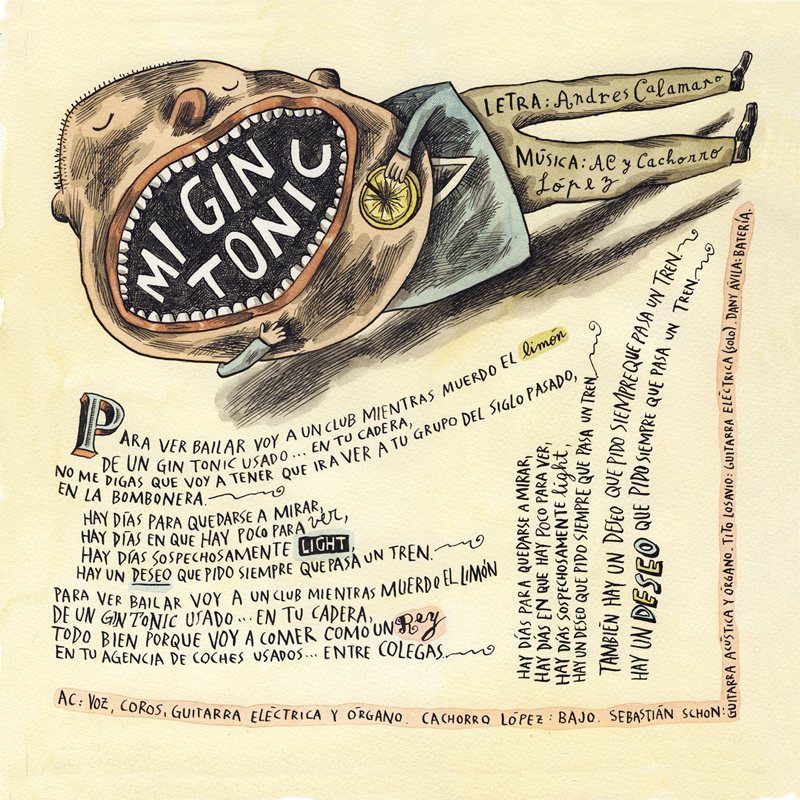 MI GIN
TONIC
LETRA: Andres Calamaro
MÚSICA: AC y Cachorro
López
PARA VER BAILAR VOY A UN CLUB MIENTRAS MUERDO EL limón
DE UN GIN TONIC USADO... EN TU CADERA,
NO ME DIGAS QUE VOY A TENER QUE IR A VER A TU GRUPO DEL SIGLO PASADO,
EN LA BOMBONERA.
HAY DÍAS PARA QUEDARSE A MIRAR,
HAY DÍAS EN QUE HAY POCO PARA ver,
HAY DÍAS SOSPECHOSAMENTE LIGHT,
HAY UN DESEO QUE PIDO SIEMPRE QUE PASA UN TREN.
PARA VER BAILAR VOY A UN CLUB MIENTRAS MUERDO EL LIMÓN
DE UN GIN TONIC USADO... EN TU CADERA,
TODO BIEN PORQUE VOY A COMER COMO UN Rey
EN TU AGENCIA DE COCHES USADOS... ENTRE COLEGAS.
HAY DÍAS PARA QUEDARSE A MIRAR,
HAY DÍAS EN QUE HAY POCO PARA VER,
HAY DÍAS SOSPECHOSAMENTE light,
HAY UN DESEO QUE PIDO SIEMPRE QUE PASA UN TREN
TAMBIÉN HAY UN DESEO QUE PIDO SIEMPRE QUE PASA UN TREN.
HAY UN DESEO QUE PIDO SIEMPRE QUE PASA UN TREN.
AC: VOZ, COROS, GUITARRA ELÉCTRICA Y ÓRGANO. CACHORRO LÓPEZ: BAJO. SEBASTIÁN SCHON:
GUITARRA ACÚSTICA Y ÓRGANO. TITO LOSAVIO: GUITARRA ELÉCTRICA (SOLO). DANY ÁVILA: BATERÍA.